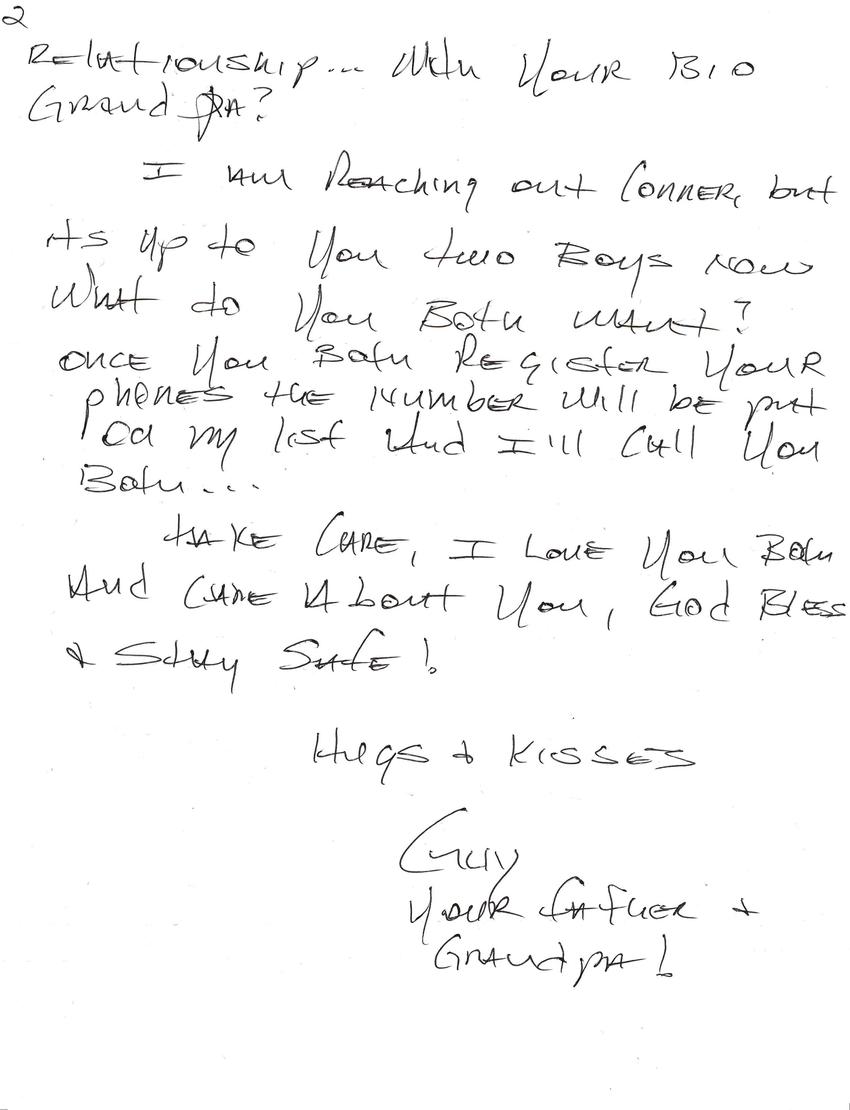 2
Relationship... With Your Bio
Grand pa?
I am Reaching out Conner, but
its up to you two Boys now
What do you Both want?
once you Both Register your
phones the number will be put
on my list And I'll Call you
Both...
take Care, I Love you Both
And Care About you, God Bless
& Stay Safe!
Hugs & Kisses
Guy
Your father &
Grandpa!